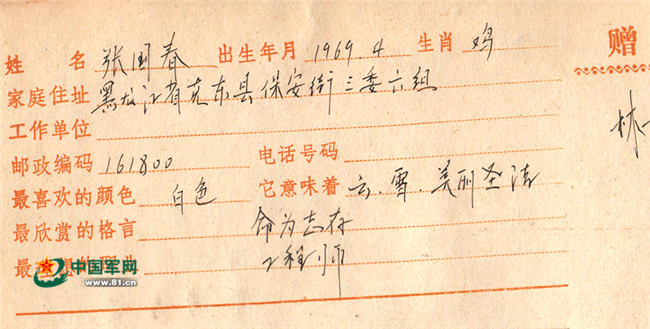 姓 名 张国春 出生年月 1969.4 生肖 鸡
赠
家庭住址 黑龙江省克东县保安街三委六组
工作单位
林
邮政编码 161800 电话号码
最喜欢的颜色 白色 它意味着 云、雪、美丽圣洁
最欣赏的格言 命为志存
最理想的职业 工程师
中国军网
www.81.cn